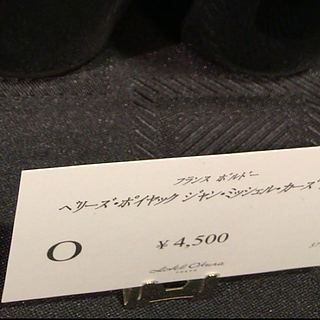 フランス ボルドー
ベリーズ・ポイヤック ジャン・ミッシェル・カーズ
O
¥4,500
Hotel Okura